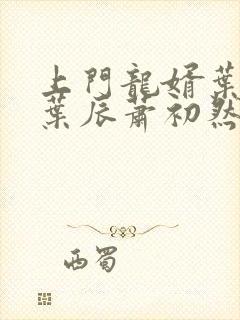 上門龍婿葉
葉辰蕭初然
西蜀